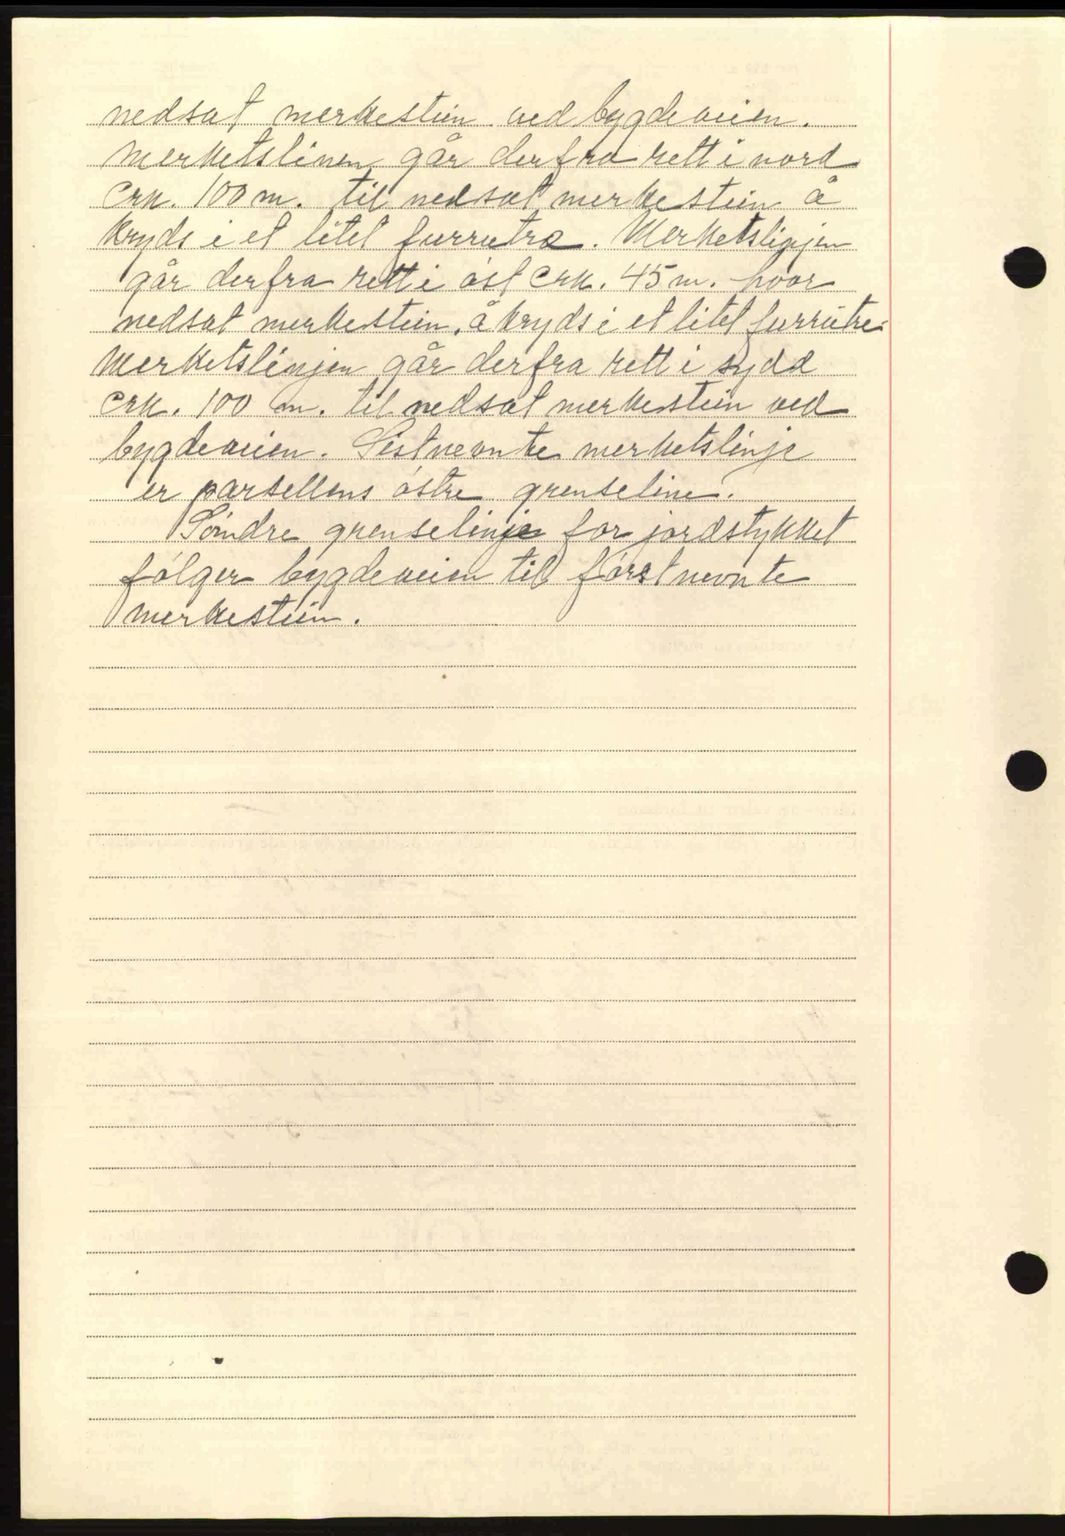 nedsat merkestein ved bygdeveien.
Merketslinen går derfra rett i nord
crk. 100 m. til nedsat merkestein å
kryds i et litet furrutræ. Merketslinjen
går derfra rett i óst crk. 45 m. hvor
nedsat merkestein, å kryds i et litet furrutre.
Merketslinjen går derfra rett i sydd
crk. 100 m. til nedsat merkestein ved
bygdeveien. Sistnevnte merketslinje
er parsellens óstre grenseline.
Sóndre grenselinje for jordstykket
fólger bygdeveien til fórstnevnte
merkestein.